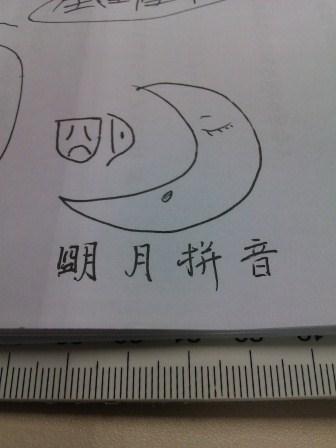 朙月拼音